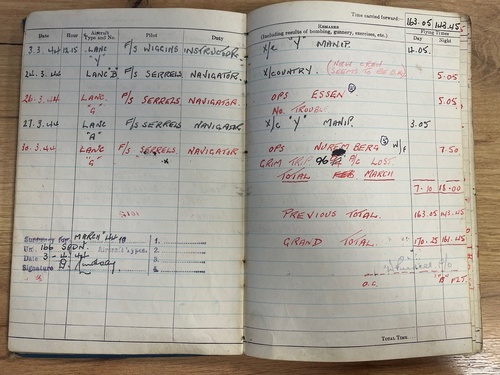 Date Hour Aircraft Type and No. Pilot Duty
3.3.44 12.15 LANC "Y" F/S WIGGINS INSTRUCTOR
24.3.44 LANC B F/S SERRELS NAVIGATOR.
26.3.44 LANC. "G" F/S SERRELS NAVIGATOR.
27.3.44 LANC "A" F/S SERRELS NAVIGATOR
30.3.44 LANC "G" F/S SERRELS NAVIGATOR
Summary for MARCH 44
Unit 166 SQDN. Aircraft types.
Date 3-4-44
Signature
1.
2.
3.
4.
Time carried forward:— 163.05 143.45
REMARKS
(Including results of bombing, gunnery, exercises, etc.)
Flying Times
Day Night
X/C "Y" MANIP. 4.05
X/COUNTRY. (NEW CREW SEEMS TO BE 5.05
OPS ESSEN 5.05
NO TROUBLE
X/C "Y" MANIP. 3.05
OPS NUREMBERG 7.50
GRIM TRIP 96 A/C LOST.
TOTAL MARCH 7.10 18.00
PREVIOUS TOTAL. 163.05 143.45
GRAND TOTAL. 170.25 161.45
O.C. "B" FLT.
TOTAL TIME